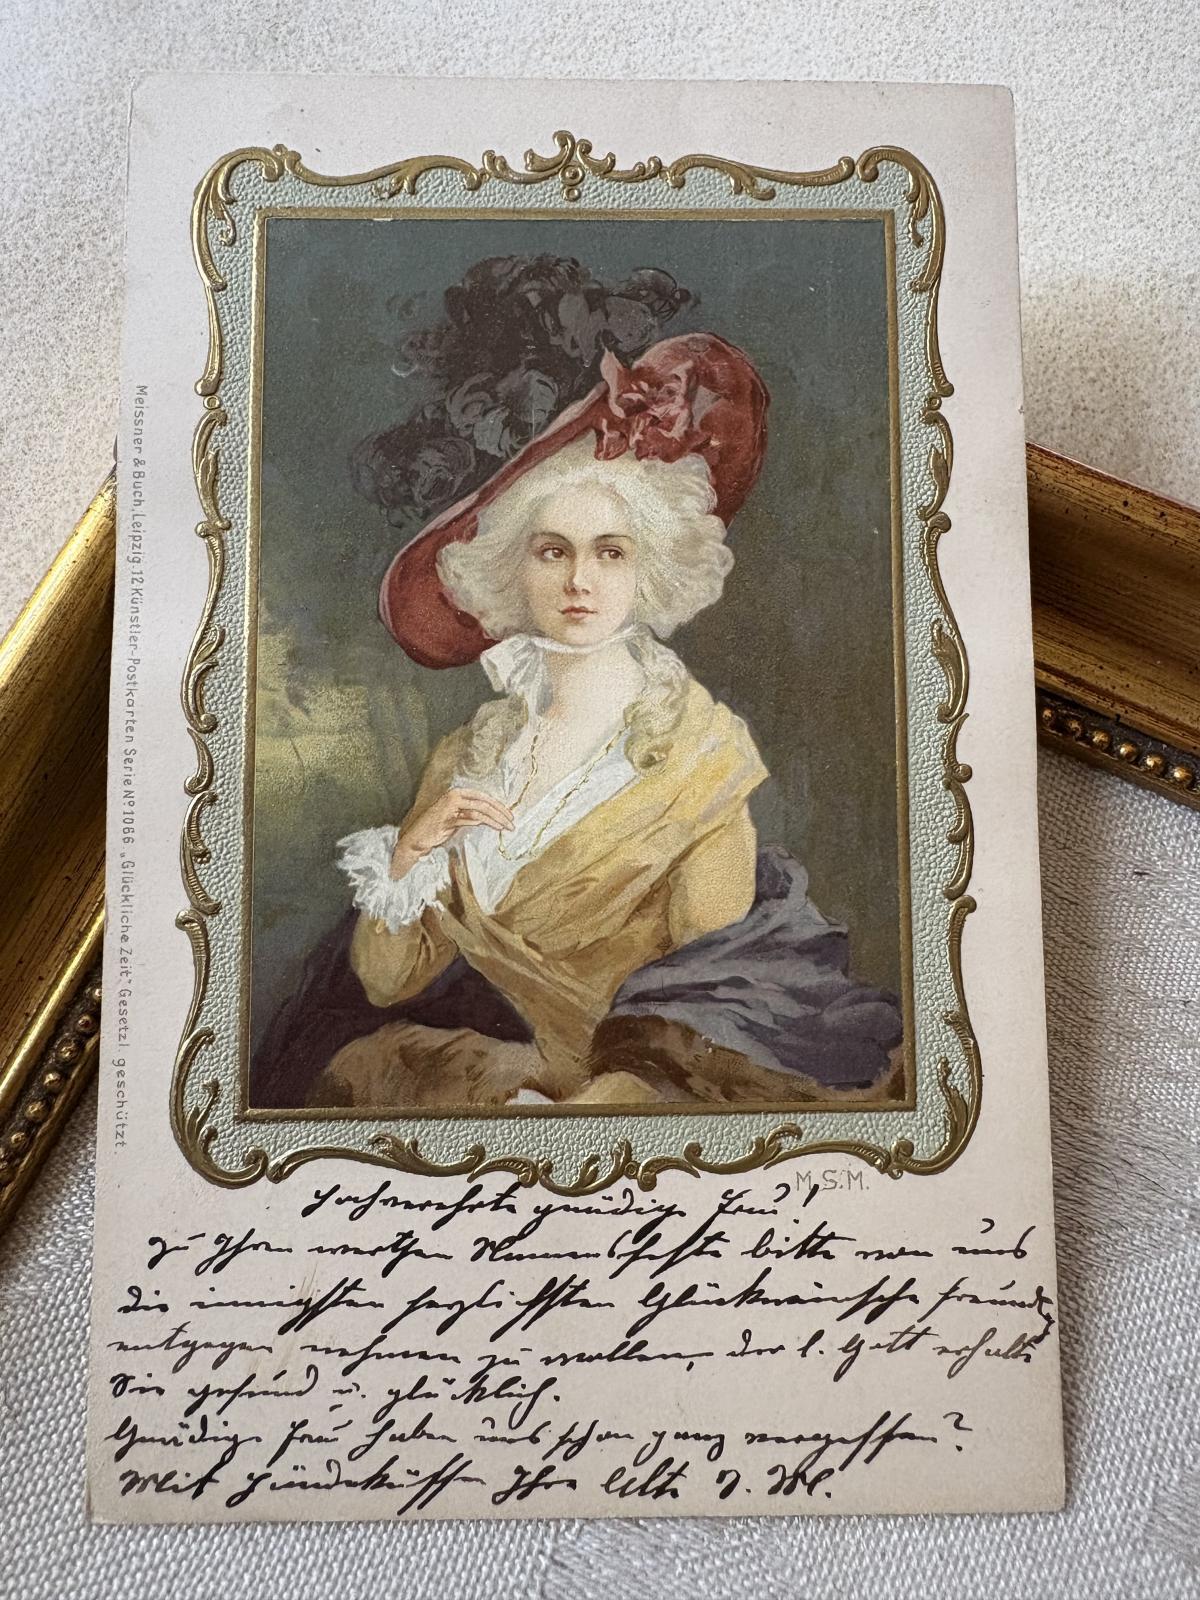 Meissner & Buch, Leipzig. 12 Künstler-Postkarten Serie Nº 1066 „Glückliche Zeit“ Gesetzl. geschützt.
M.S.M.
Hochverehrte gnädige Frau!
Zu Ihren werthen Namensfeste bitte von uns
die innigsten herzlichsten Glückwünsche freundl.
entgegen nehmen zu wollen, der l. Gott erhalte
Sie gesund u. glücklich.
Gnädige Frau haben uns schon ganz vergessen?
Mit Händeküssen Ihre alte